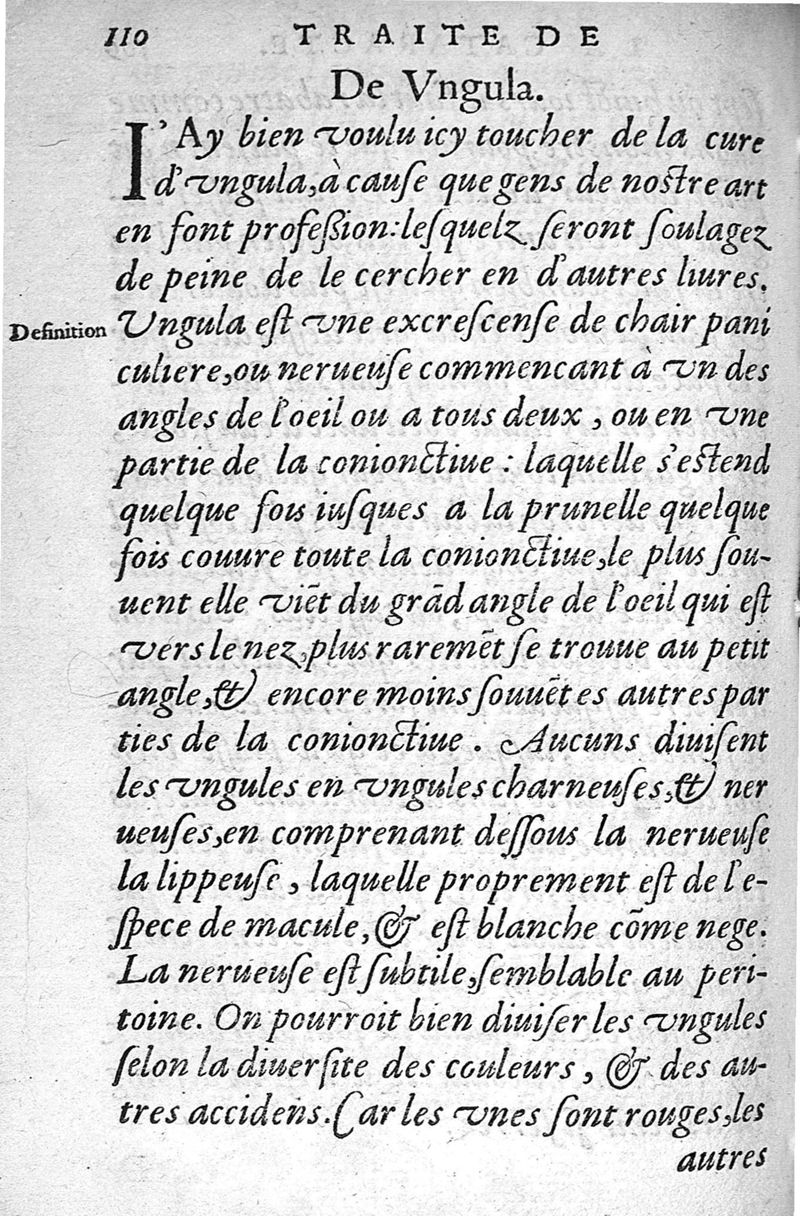 110 TRAITE DE
De Vngula.
I'Ay bien voulu icy toucher de la cure
d'vngula, à cauſe que gens de noſtre art
en font profeſſion: leſquelz ſeront ſoulagez
de peine de le cercher en d'autres liures.
Definition
Vngula eſt vne excreſcenſe de chair pani
culiere, ou nerueuſe commencant à vn des
angles de l'oeil ou a tous deux, ou en vne
partie de la conionctiue: laquelle s'eſtend
quelque fois iuſques a la prunelle quelque
fois couure toute la conionctiue, le plus ſou-
uent elle viẽt du grãd angle de l'oeil qui eſt
vers le nez, plus raremẽt ſe trouue au petit
angle, & encore moins ſouuẽt es autres par
ties de la conionctiue. Aucuns diuiſent
les vngules en vngules charneuſes, & ner
ueuſes, en comprenant deſſous la nerueuſe
la lippeuſe, laquelle proprement eſt de l'e-
ſpece de macule, & eſt blanche cõme nege.
La nerueuſe eſt ſubtile, ſemblable au peri-
toine. On pourroit bien diuiſer les vngules
ſelon la diuerſite des couleurs, & des au-
tres accidens. Car les vnes ſont rouges, les
autres